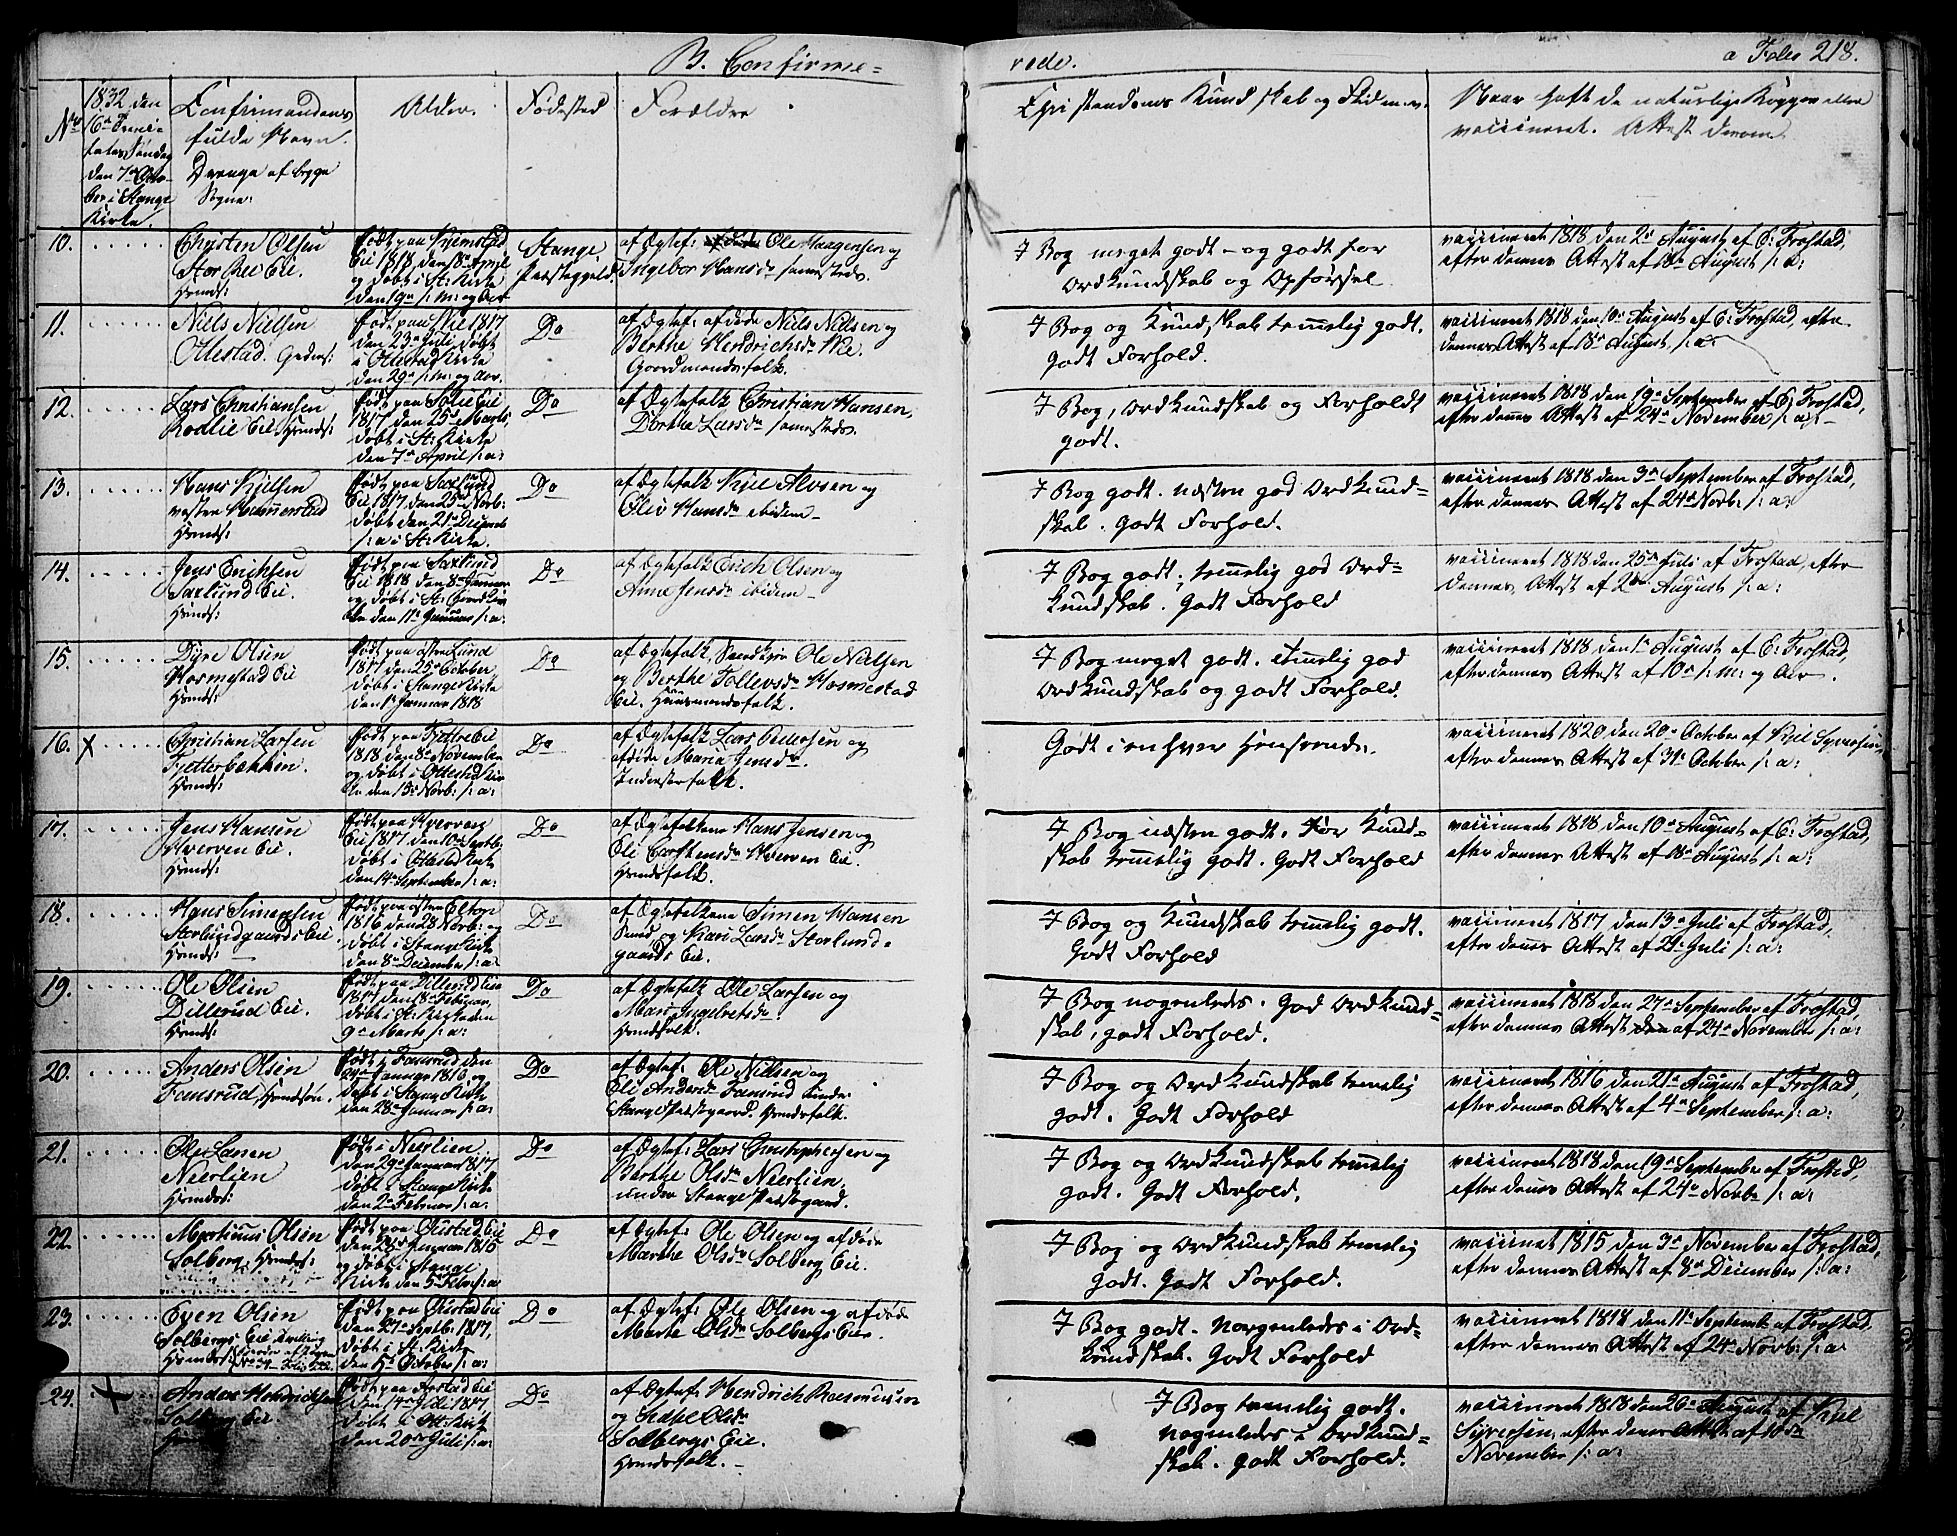 B. Confirme= rede. a Folio 218.
No
1832 den
16de Trini=
tatis Søndag
den 7de Octo=
ber i Stange
Kirke.
Confirmandens
fulde Navn.
Drenge af begge
Sogne:
Alder.
Fødested
Forældre
Christendoms Kundskab og Flid m. v.
Naar haft de naturlige Kopper eller
vaccineret. Attest derom
10.
Christen Olsen
Stor Ree Eie.
Huusm:
født paa
Eie 1818 den 18de April
og døbt i St: Kirke
den 19de s: m: og Aar
Stange
Præstegjeld.
af Ægtef: Ole Haagensen og
Ingebor Hansdr sammesteds.
I Bog meget godt - og godt for
Ordkundskab og Opførsel
vaccineret 1818 den 2de August af C: Frostad,
efter dennes Attest af 18de August s: a:
11.
Niels Nielsen
Ottestad. Gaardm:
født paa Wie 1817
den 23de Juli, døbt
i Ottestad Kirke
den 29de s: m: og Aar.
Do
af Ægtef: afdøde Niels Nielsen og
Berthe Hendrichsdr Wie.
Gaardmandsfolk.
I Bog og Kundskab temmelig godt.
godt Forhold.
vaccineret 1818 den 10de August af C: Frostad, efter
dennes Attest af 18de August s: a:
12.
Lars Christiansen
Rodlie Eie Huusm:
født paa Sølie Eie,
1817 den 25de Marts,
døbt i St: Kirke
den 7de April s: a:
Do
af Ægtefolk Christian Hansen,
Dorthe Larsdr sammesteds.
I Bog, Ordkundskab og Forholdt
godt.
vaccineret 1818 den 19de September af C: Frostad,
efter dennes Attest af 24de November s: a: -
13.
Hans Kjelsen
vestre Hammerstad
Huusm:
født paa Saxlund
Eie 1817 den 25de Novb:
døbt den 21de Decemb
s: a: i St: Kirke
Do
af Ægtefolk Kjel Alvsen og
Oliv Hansdr ibidem -
I Bog godt. næsten god Ordkund=
skab. Godt Forhold.
vaccineret 1818 den 3de September af Frostad,
efter dennes Attest af 24de Novb: s: a:
14.
Jens Erichsen
Saxlund Eie.
Huusm:
født paa Saxlund
Eie 1818 den 8de Januar
og døbt i St:
den 11te Januar s: a:
Do
af Ægtefolk Erich Olsen og
Anne Jensdr ibidem -
I Bog godt, temmelig god Ord=
kundskab. Godt Forhold
vaccineret 1818 den 25de Juli af Frostad, efter
dennes Attest af 2den August s: a:
15.
Dyre Olsen
Hosmestad Eie
Huusm:
født paa østre Lund
1817 den 25de October,
døbt i Stange Kirke
den 1te Januar 1818
Do
af Ægtefolk, Ole Nielsen
og Berthe Tollevsdr Hosmestad
Eie. Huusmandsfolk.
I Bog meget godt. temmelig god
Ordkundskab og godt Forhold.
vaccineret 1818 den 1te August af C: Frostad,
efter dennes Attest af 10de s: m: og Aar.
16. X
Christian Larsen
Fjetterbækken.
Huusm:
født paa Fjettre Eie
1818 den 8de November
og døbt i Ottestad Kir
ke den 13de Novb: s: a:
Do
af Ægtefolk Lars Pedersen og
afdøde Maria Jensdr.
Inderstfolk.
Godt i enhver Henseende.
vaccineret 1820 den 20de October af Kjel Syversen,
efter dennes Attest af 31te October s: a:
17.
Jens Hansen
Hverven Eie.
Huusm:
født paa Hverven
Eie 1817 den 10de Septb:
døbt i Ottestad Kirke
den 14de September s: a:
Do
af Ægtefolkene Hans Jensen og
Eli Carstensdr Hverven Eie.
Huusfolk.
I Bog næsten godt. For Kund=
skab temmelig godt. Godt Forhold
vaccineret 1818 den 10de August af C: Frostad,
efter dennes Attest af 18de August s: a:
18.
Hans Simensen
Storlundgaards Eie
Huusm:
født paa østre Elton
1816 den 28 Novb: og
døbt i Stange Kirke
den 8de December s: a:
Do
af Ægtefolkene Simen Hansen
Lund og Kari Larsdr Storlund=
gaards Eie.
I Bog og Kundskab temmelig godt.
Godt Forhold
vaccineret 1817 den 13de Juli af Frostad,
efter dennes Attest af 21de Juli s: a:
19.
Ole Olsen
Dillerud Eie.
Huusm:
født paa Dillerud Eie
1817 den 18de Februar,
døbt i St: Kirke den
9de Marts s: a:
Do
af Ægtefolk Ole Larsen og
Mari Ingebretsdr
Huusfolk.
I Bog nogenledes. God Ordkund=
skab, godt Forhold.
vaccineret 1818 den 27de September af Frostad,
efter dennes Attest af 24de November s: a:
20.
Anders Olsen
Fansrud, Huusm:
født i Fansrud den
24de Januar 1816 og
døbt i Stange Kirke
den 28de Januar s: a:
Do
af Ægtef: Ole Nielsen og
Eli Andersdr Fansrud under
Stange Præstegaard. Huusfolk.
I Bog og Ordkundskab temmelig
godt. Godt Forhold
vaccineret 1816 den 21de August af Frostad,
efter dennes Attest af 4de September s: a:
21.
Ole Larsen
Neerlien
Huusm:
født i Neerlien
den 29de Januar 1817
døbt i Stange Kirke
den 2den Februar s: a:
Do
af Ægtef: Lars Christophersen og
Berthe Olsdr Neerlien,
under Stange Præstegaard.
I Bog og Ordkundskab temmelig
godt. Godt Forhold.
vaccineret 1818 den 19de September af Frostad,
efter dennes Attest af 24de Novbr s: a:
22.
Martinus Olsen
Solberg, Huusm:
født paa Oustad Eie
den 28de Januar 1815
og døbt i Stange
Kirke den 5te Febr: s: a:
Do
af Ægtef: Ole Olsen og afdøde
Marthe Olsdr Solberg Eie.
I Bog og Ordkundskab temmelig
godt. Godt Forhold.
vaccineret 1815 den 3de November af Frostad,
efter dennes Attest af 8de December s: a:
23.
Even Olsen
Solbergs Eie
Huusm:
født paa Oustad Eie
den 27de Septb: 1817,
døbt i St: Kirke
den 5te October s: a:
Do
af Ægtef: Ole Olsen og afdøde
Marte Olsdr Solbergs Eie.
I Bog godt. Nogenledes i Ord=
kundskab. Godt Forhold
vaccineret 1818 den 11te Septemb: af Frostad,
efter dennes Attest af 24de Novb: s: a:
24. X
Anders Hendrichsen
Solberg Eie
født paa Arstad Eie
den 14de Juli 1817,
døbt i Ott: Kirke
den 20de Juli s: a:
Do
af Ægtef: Hendrich Rasmussen
og Sidsel Olsdr
Solbergs Eie.
Huusfolk. -
I Bog temmelig godt.
nogenledes i Ordkund=
skab. Godt Forhold.
vaccineret 1818 den 26de August af Kjel
Syversen, efter dennes Attest af 10de
November s: a: